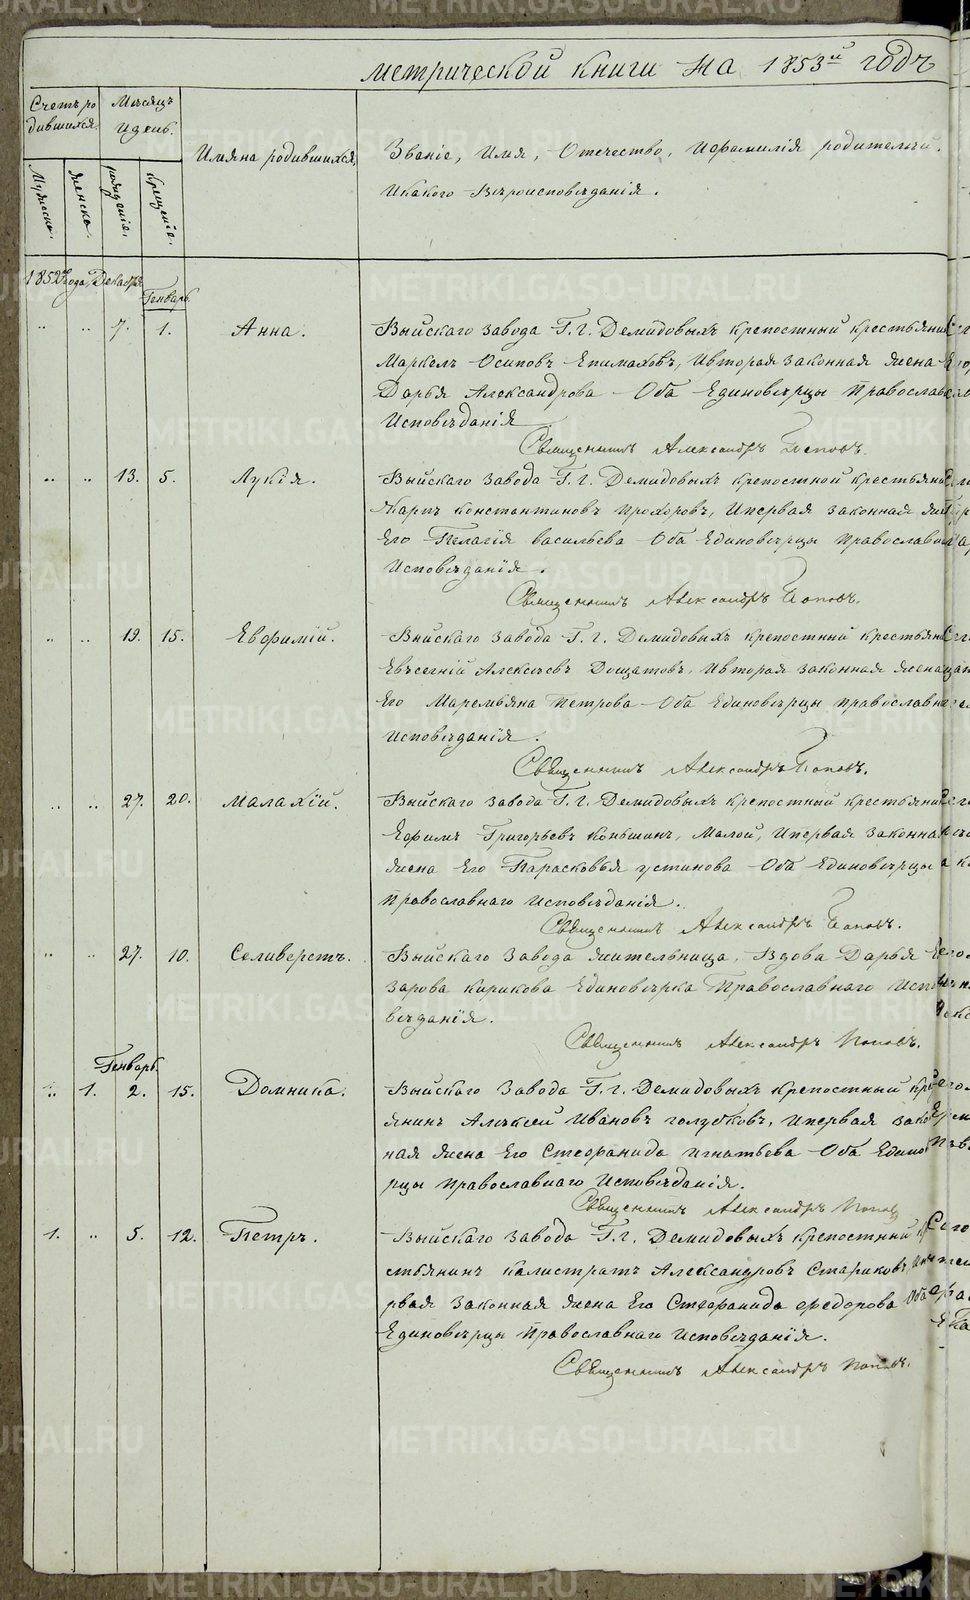 метрической книги на 1853й годъ
Счетъ ро
дившихся.
Мѣсяцъ
и день.
Имяна родившихся.
Званіе, Имя, Отечество, и фамилія родителей.
и какого Вѣроисповѣданія.
Мужеска.
женска.
рожденія.
крещенія.
1852 года Декабрь
Генварь.
" " 7. 1. Анна.
Выйскаго завода Г. г. Демидовыхъ крепостный крестьянин
Маркелъ Осиповъ Епимаховъ, и вторая законная жена
Дарья Александрова Оба Единовѣрцы Православ
Исповѣданія
Священникъ Александръ Поповъ.
" " 13. 5. Лукія.
Выйскаго завода Г. г. Демидовыхъ крепостной крестьянин
Карпъ Константиновъ Прохоровъ, и первая законная же
Его Пелагія васильева Оба Единовѣрцы Православна
Исповѣданія.
Священникъ Александръ Поповъ.
" " 19. 15. Евфимій.
Выйскаго завода Г. г. Демидовыхъ крепостный крестьян
Евсегній Алексѣевъ Дощатовъ, и вторая законная жена
Его Маремьяна Петрова Оба Единовѣрцы православн
исповѣданія.
Священникъ Александръ Поповъ.
" " 27. 20. Малахій.
Выйскаго завода Г. г. Демидовыхъ крепостный крестьянин
Ефимъ Григорьевъ Коньшинъ, Малой, и первая законна
жена Его Парасковья устинова Оба Единовѣрцы
православнаго исповѣданія.
Священникъ Александръ Поповъ.
" " 27. 10. Селиверстъ.
Выйскаго завода жительница, Вдова Дарья
зарова Кирикова Единовѣрка Православнаго Испо
вѣданія.
Священникъ Александръ Поповъ.
Генварь.
" 1. 2. 15. Домника.
Выйскаго завода Г. г. Демидовыхъ крепостный кре
янинъ Алексей Ивановъ голубковъ, и первая зако
ная жена Его Стефанида игнатьева Оба Едино
рцы православнаго Исповѣданія.
Священникъ Александръ Поповъ
1. " 5. 12. Петръ.
Выйскаго завода Г. г. Демидовыхъ крепостный кр
стьянинъ калистратъ Александровъ Стариковъ, и пе
рвая законная жена Его Стефанида федорова Оба
Единовѣрцы православнаго исповѣданія.
Священникъ Александръ Поповъ.
METRIKI.GASO-URAL.RU